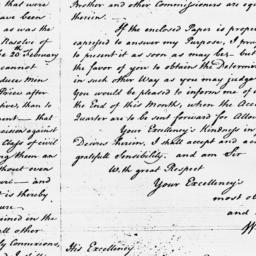 that were
have been
as was the
Master of
20 February
cannot
duce Men
Prices after
tive than to
ment — that
cision against
Class of civil
ing them an
thout even
are — and
t is thereby
ure —
tained in the
ll other
ly Commissions,
Brother and other Commissioners are
therein.
If the enclosed Paper is
expressed to answer my Purpose, I
to present it as soon as may be — but
the favor of you to obtain the
in such other Way as you may judge
You would be pleased to inform me of
the End of this Month, when the
Quarter are to be sent forward for
Your Excellency's Kindness in
Desires therein, I shall accept and
gratefull Sensibility, and am Sir
With great Respect
Your Excellency's
most
and
His Excellency